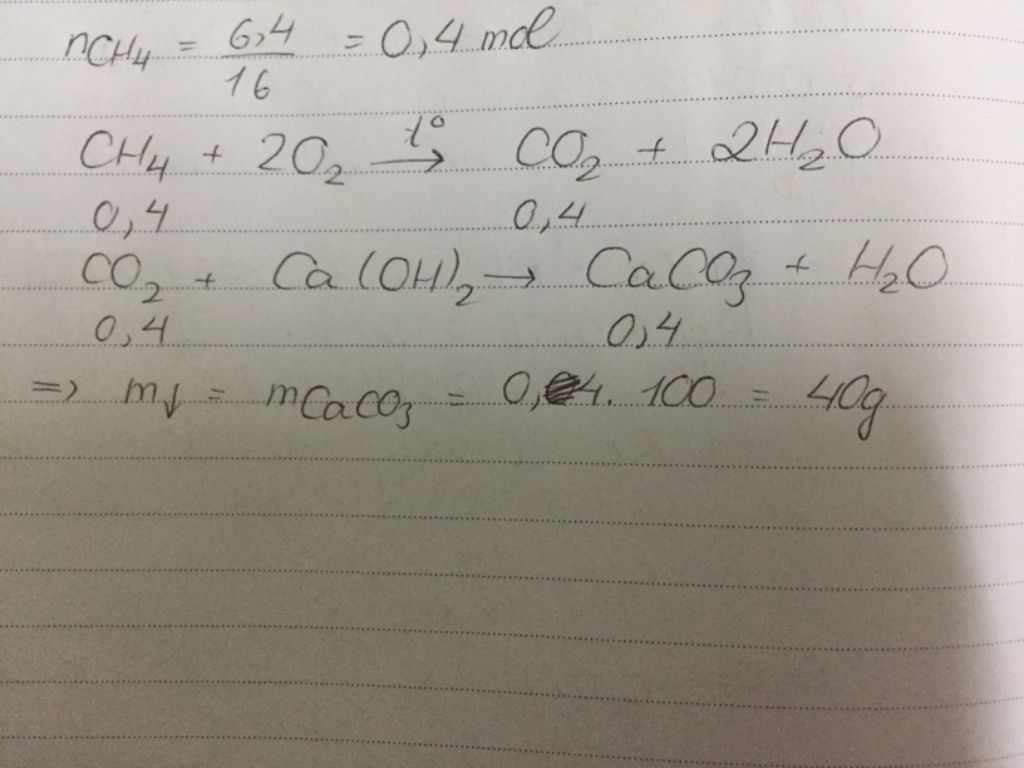 nCH₄ = 6,4/16 = 0,4 mol
CH₄ + 2O₂ →(t°) CO₂ + 2H₂O
0,4 0,4
CO₂ + Ca(OH)₂ → CaCO₃ + H₂O
0,4 0,4
=> m↓ = mCaCO₃ = 0,4. 100 = 40g